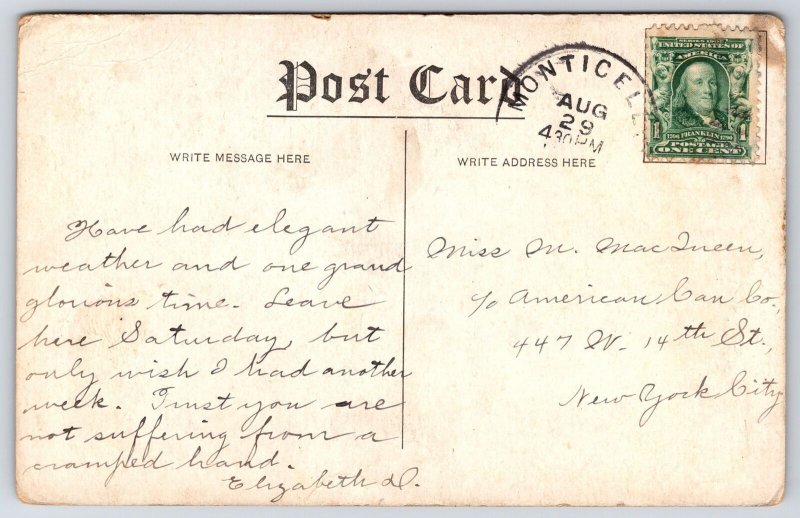 Post Card
MONTICEL
AUG
29
430 PM
SERIES 1902
UNITED STATES OF
AMERICA
1706 FRANKLIN 1790
POSTAGE
1 ONE CENT 1
WRITE MESSAGE HERE
WRITE ADDRESS HERE
Have had elegant
weather and one grand
glorious time. Leave
here Saturday, but
only wish I had another
week. Trust you are
not suffering from a
cramped hand.
Elizabeth D.
Miss M. MacQueen,
c/o American Can Co.,
447 W. 14th St.,
New York City